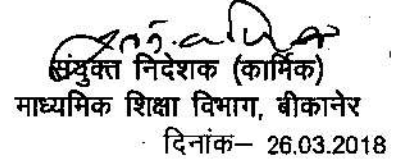 संयुक्त निदेशक (कार्मिक)
माध्यमिक शिक्षा विभाग, बीकानेर
दिनांक– 26.03.2018